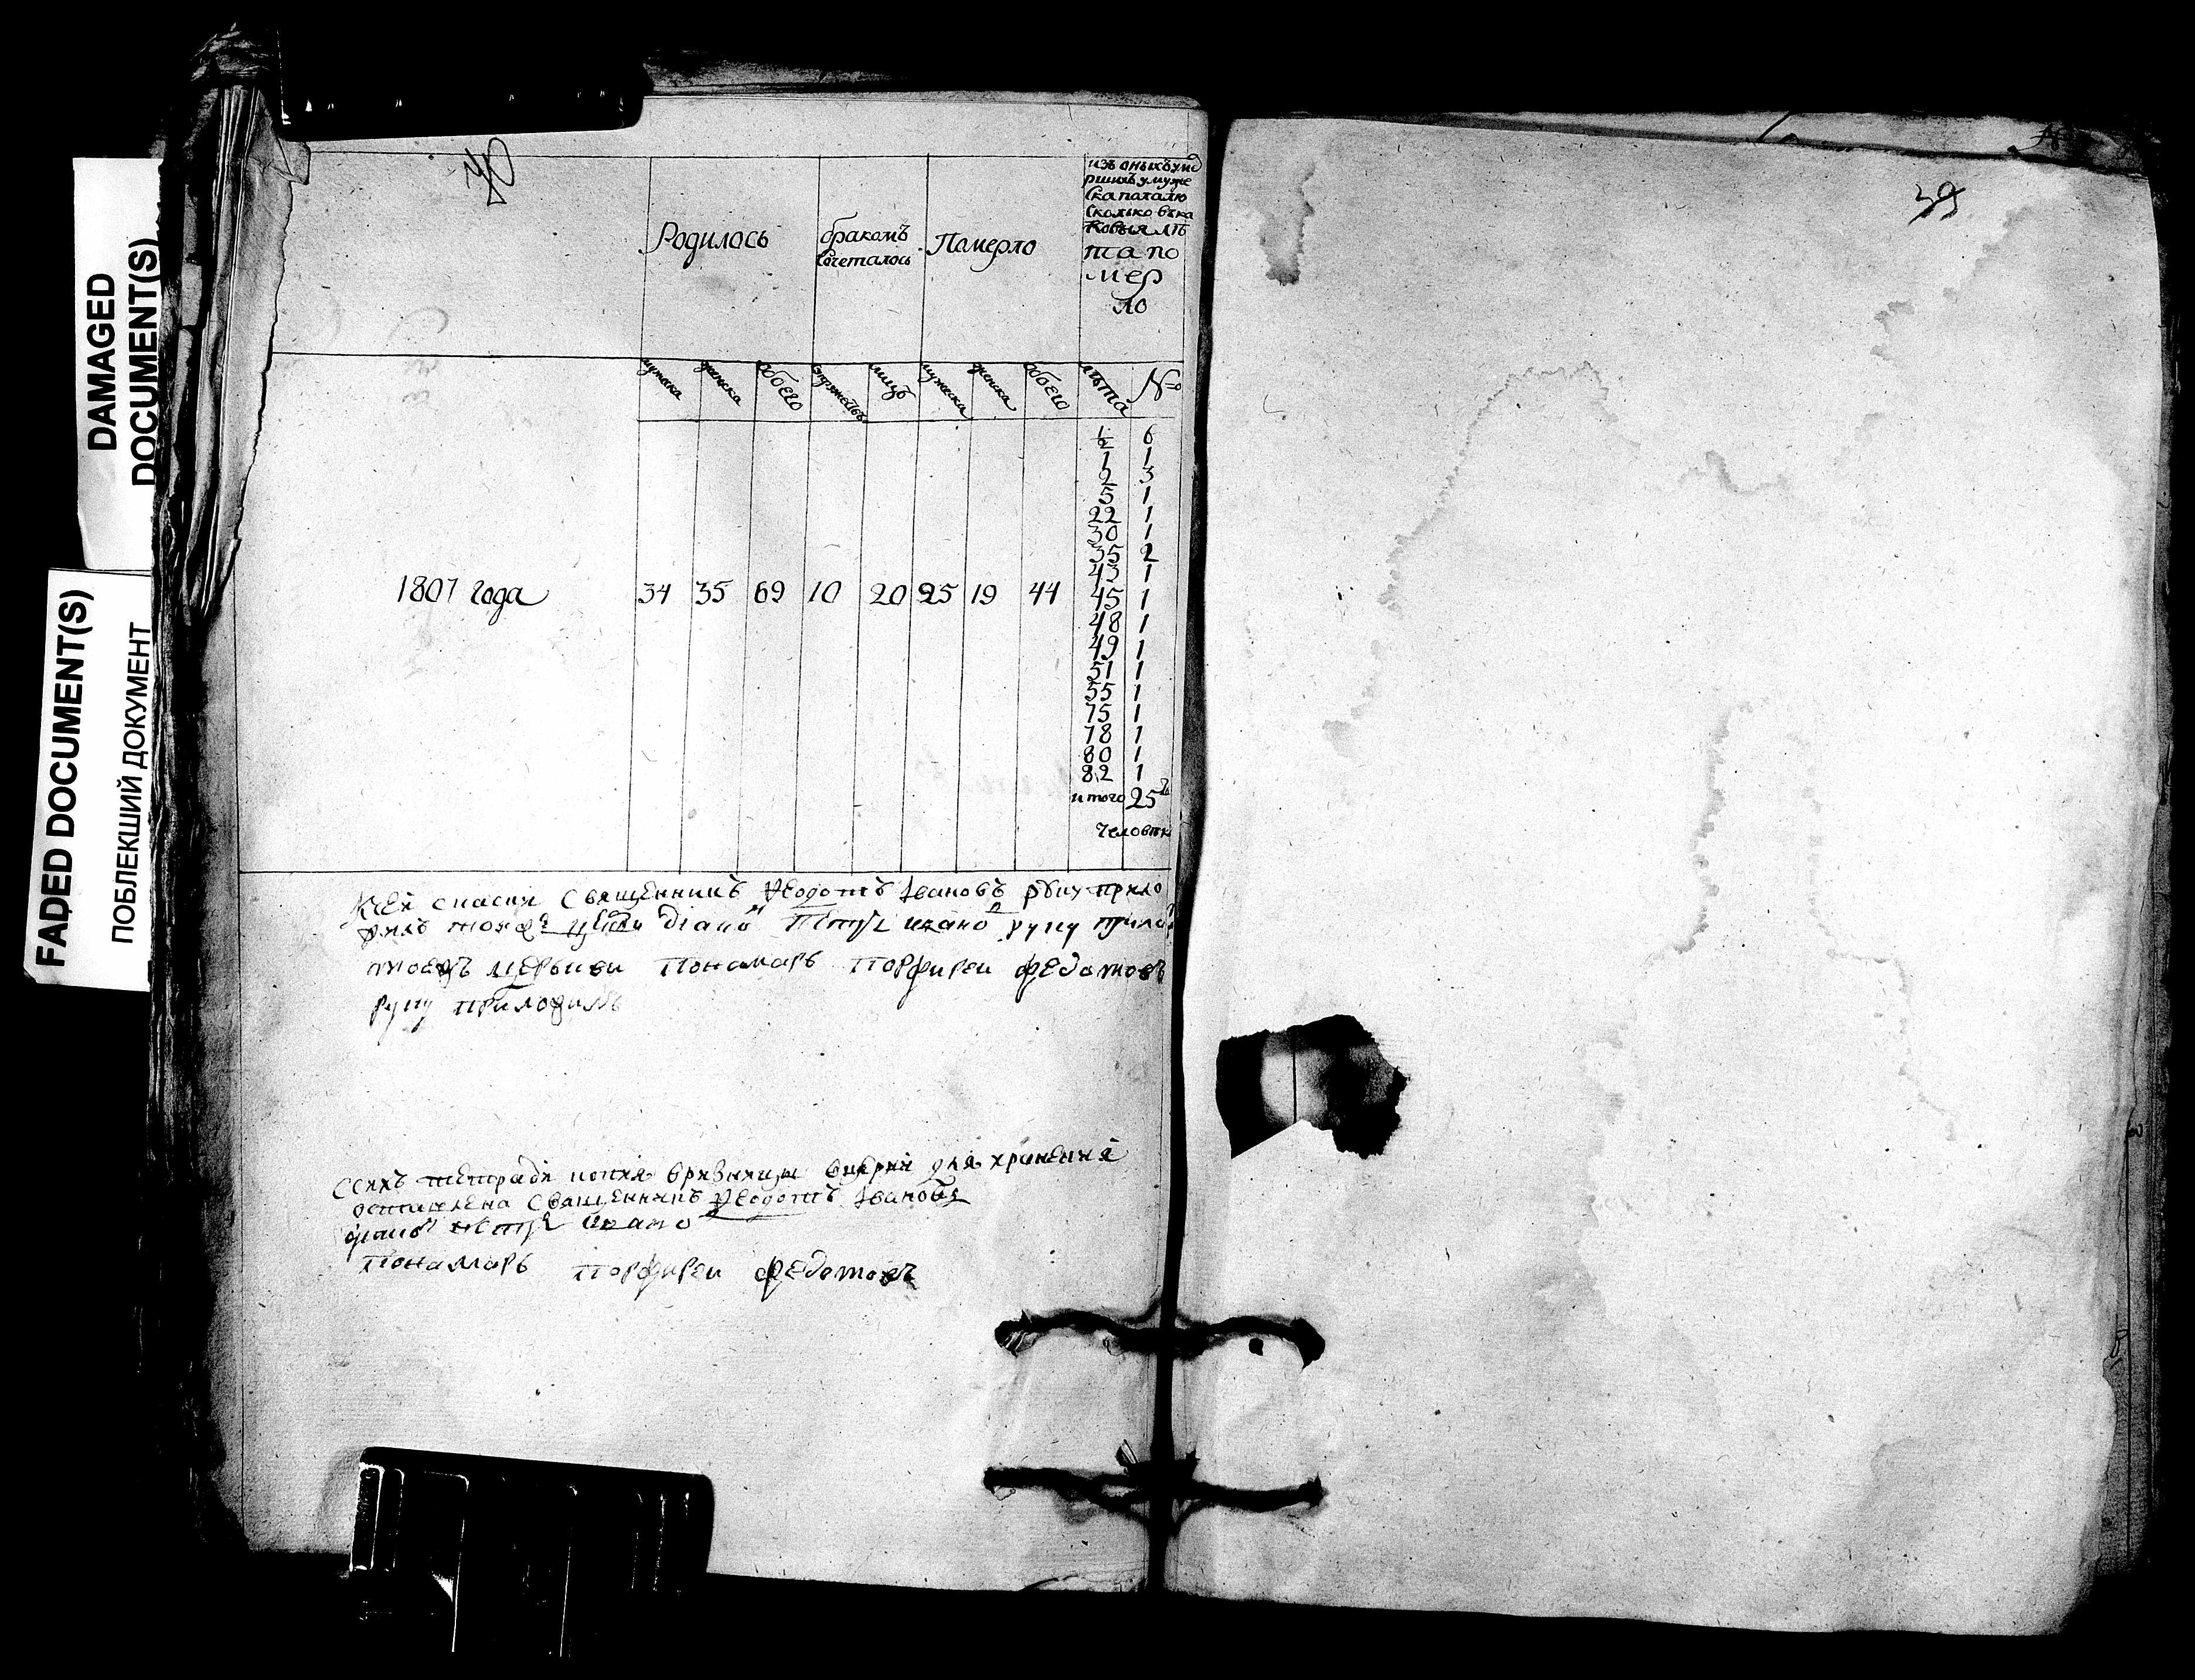 DAMAGED
DOCUMENT(S)
FADED DOCUMENT(S)
ПОБЛЕКШИЙ ДОКУМЕНТ
39
Родилось
бракомъ
сочеталось
Померло
изъ оныхъ уме
ршихъ муже
ска пола по
сколько въ ка
ковыя лѣ
та по
мер
ло
мужска женска обоего супружествъ лицъ мужска женска обоего лѣта №
1807 года 34 35 69 10 20 25 19 44
½ 6
1 1
2 3
5 1
22 1
30 1
35 2
43 1
45 1
48 1
49 1
51 1
55 1
75 1
78 1
80 1
82 1
итого 25
человѣкъ
священникъ Ѳеодотъ Івановъ руку прило
жилъ тояжъ церкви діако Петръ ивано руку прило
тоежъ церькви Пономарь Порфиреи Федотовъ
руку приложилъ
сихъ тетради копия вризницы для хранения
оставлена священникъ Ѳеодотъ Івановъ
діако Петръ ивано
Пономарь Порфиреи Федотовъ